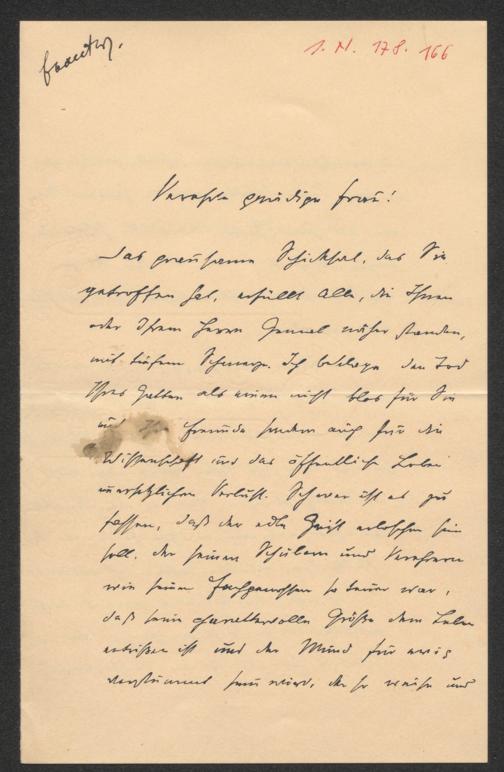 beantw.
I. N. 178.166
Verehrte gnädige Frau!
Das grausame Schicksal, das Sie
getroffen hat, erfüllt alle, die Ihnen
oder Ihrem Herrn Gemal näher standen,
mit tiefem Schmerze. Ich beklage den Tod
Ihres Gatten als einen nicht blos für Sie
und Ihre Freunde sondern auch für die
Wissenschaft und das öffentliche Leben
unersetzlichen Verlust. Schwer ist es zu
fassen, daß der edle Geist erloschen sein
soll, der seinen Schülern und Verehrern
wie seinen Fachgenossen so teuer war,
daß seine charaktervolle Größe dem Leben
entrissen ist und der Mund für ewig
verstummt sein wird, der so weise und